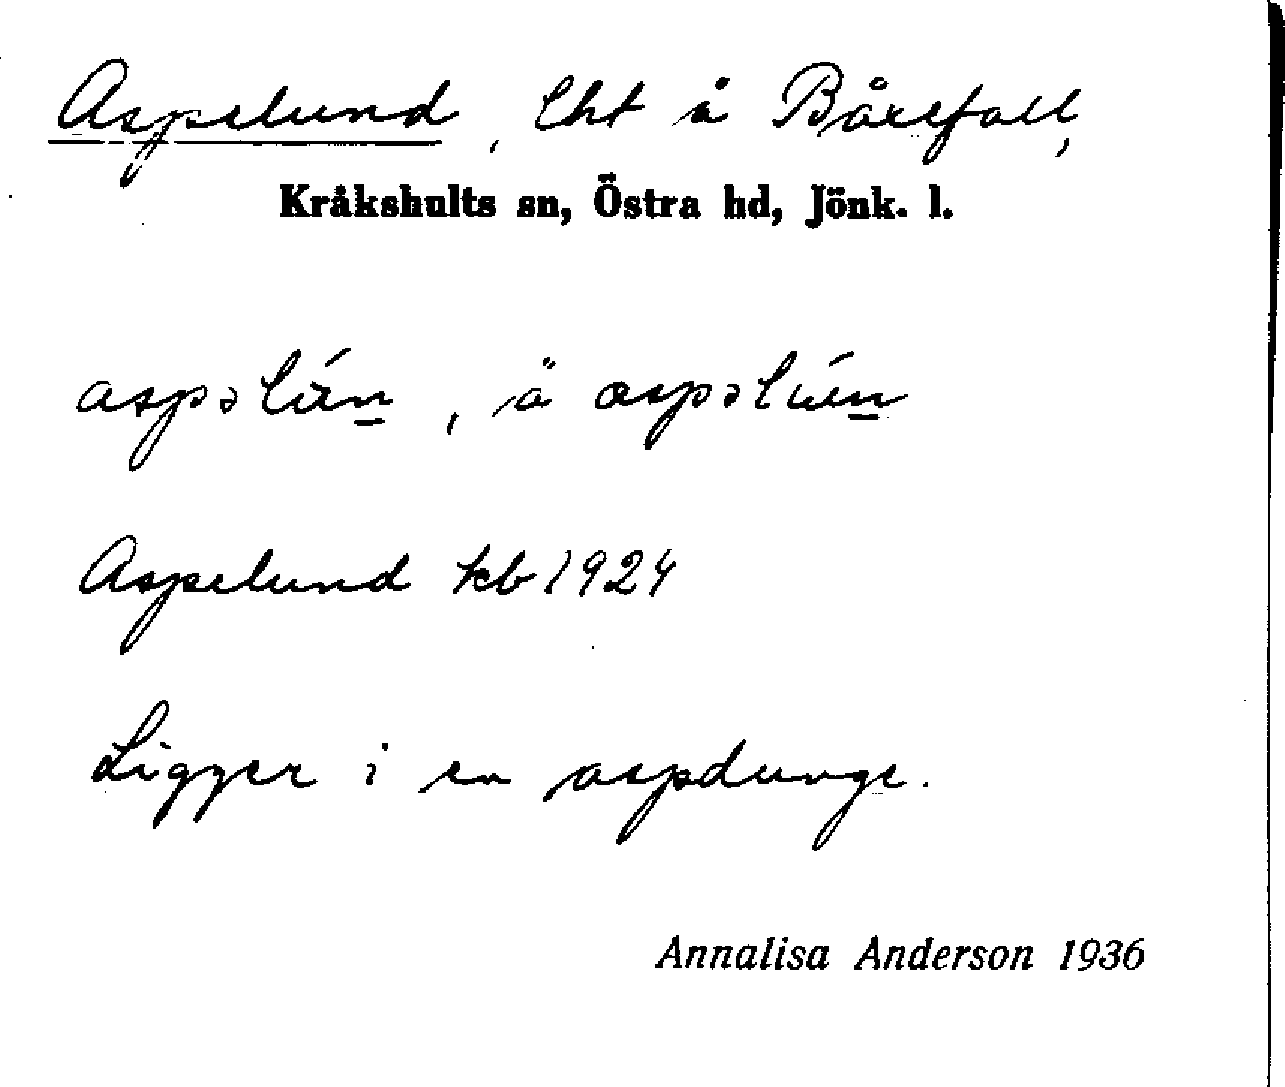 Aspelund, lht å Bårefall,
Kråkshults sn, Östra hd, Jönk. l.
aspəlún, ä aspəlún
Aspelund kb 1924
Ligger i en aspdunge.
Annalisa Anderson 1936